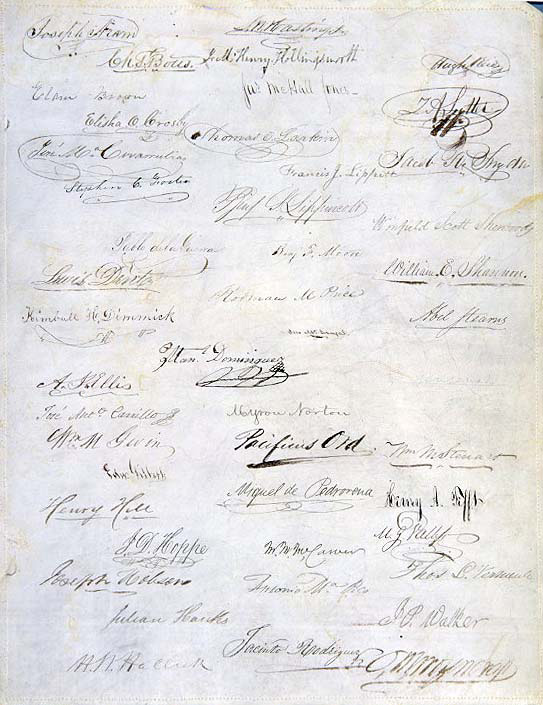 Joseph Aram
L. W. Hastings
Ch. T. Botts
J. McHenry Hollingsworth
Hugh Reid
Elam Brown
Jas McHall Jones
J. A. Sutter
Elisha O. Crosby
Thomas O. Larkin
José Ma Covarrubias
Jacob R. Snyder
Francis J. Lippitt
Stephen C. Foster
Benj. S. Lippincott
Winfield Scott Sherwood
Pablo de la Guerra
Benj. F. Moore
William E. Shannon
Lewis Dent
Rodman M. Price
Abel Stearns
Kimball H. Dimmick
Man. Dominguez
A. J. Ellis
José Anto Carrillo
Myron Norton
Wm. M. Gwin
Pacificus Ord
Wm M. Steuart
Edw. Gilbert
Miguel de Pedrorena
Henry A. Tefft
Henry Hill
J. D. Hoppe
M. M. McCarver
M. G. Vallejo
Joseph Hobson
Antonio Ma Pico
Thos L. Vermeule
Julian Hanks
J. P. Walker
H. W. Halleck
Jacinto Rodriguez